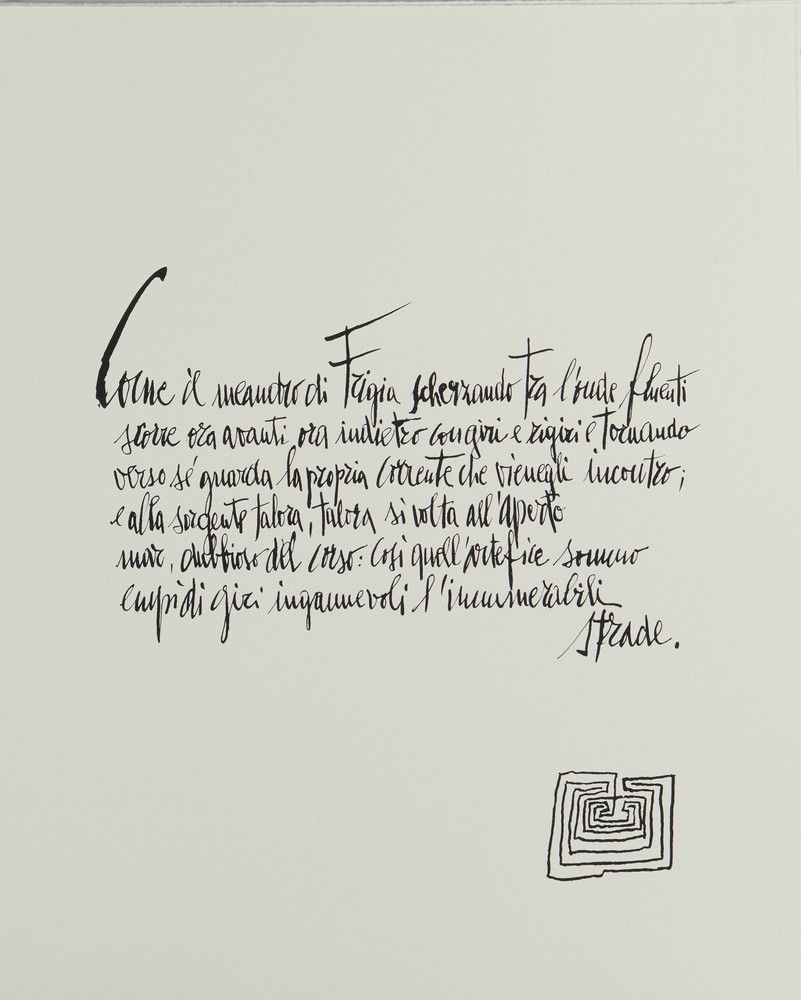 Come il meandro di Frigia scherzando tra l'onde fluenti
scorre ora avanti ora indietro con giri e rigiri e tornando
verso sé guarda la propria corrente che vienegli incontro;
e alla sorgente talora, talora si volta all'aperto
mar, dubbioso del corso: così quell'artefice sommo
empì di giri ingannevoli l'innumerabili
strade.